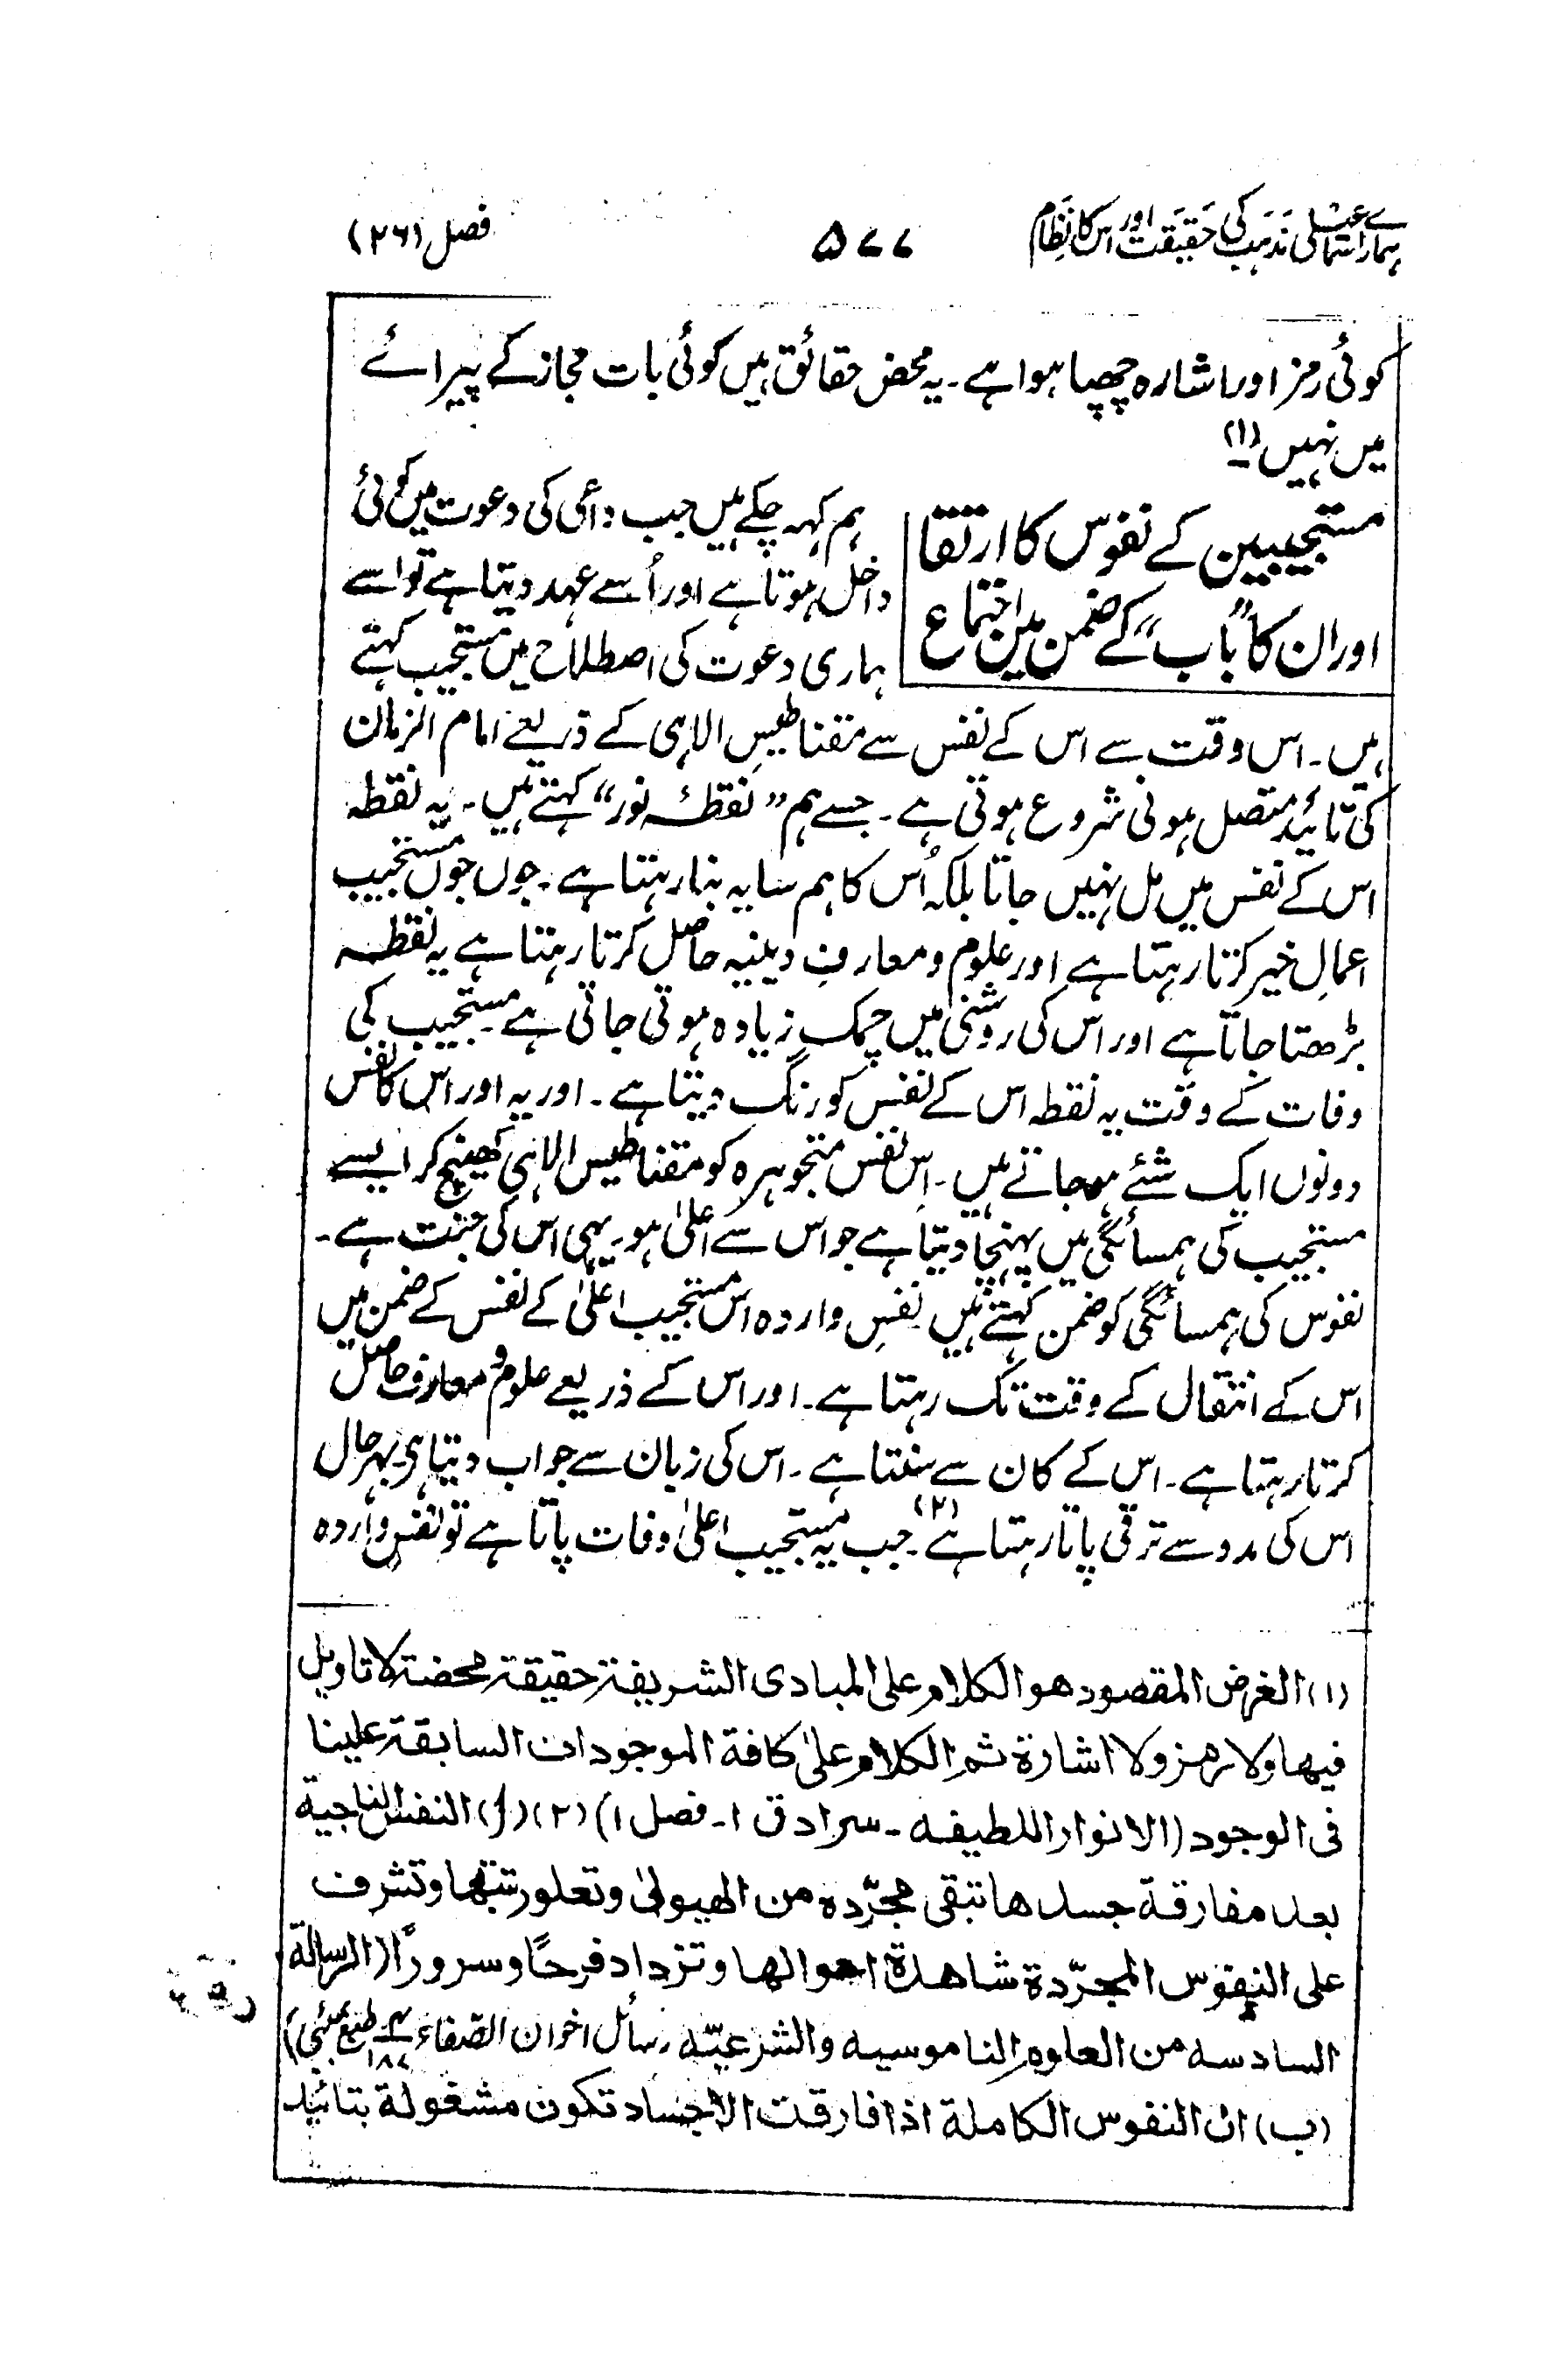 ہمارے اسماعیلی مذہب کی حقیقت اور اس کا نظام
۵۷۷
فصل (۲۶)
کوئی رمز اور اشارہ چھپا ہوا ہے۔ یہ محض حقائق ہیں کوئی بات مجاز کے پیرائے
میں نہیں (۱)
مستجیبین کے نفوس کا ارتقا
اور ان کا "باب" کے ضمن میں اجتماع
ہم کہہ چکے ہیں جب داعی کی دعوت میں کوئی
داخل ہوتا ہے اور اُسے عہد دیتا ہے تو اسے
ہماری دعوت کی اصطلاح میں مستجیب کہتے
ہیں۔ اس وقت سے اس کے نفس سے مقناطیسِ الاہی کے ذریعے امام الزمان
کی تائید متصل ہونی شروع ہوتی ہے۔ جسے ہم "نقطۂ نور" کہتے ہیں۔ یہ نقطہ
اس کے نفس میں مل نہیں جاتا بلکہ اُس کا ہم سایہ بنا رہتا ہے۔ جوں جوں مستجیب
اعمالِ خیر کرتا رہتا ہے اور علوم و معارفِ دینیہ حاصل کرتا رہتا ہے یہ نقطہ
بڑھتا جاتا ہے اور اس کی روشنی میں چمک زیادہ ہوتی جاتی ہے۔ مستجیب کی
وفات کے وقت یہ نقطہ اس کے نفس کو رنگ دیتا ہے۔ اور یہ اور اس کا نفس
دونوں ایک شئے ہوجاتے ہیں۔ اِس نفس متجوہرہ کو مقناطیس الاہی کھینچ کر ایسے
مستجیب کی ہمسائگی میں پہنچا دیتا ہے جو اس سے اعلیٰ ہو۔ یہی اس کی جنت ہے۔
نفوس کی ہمسائگی کو ضمن کہتے ہیں۔ نفسِ واردہ اس مستجیب اعلیٰ کے نفس کے ضمن میں
اس کے انتقال کے وقت تک رہتا ہے۔ اور اس کے ذریعے علوم و معارف حاصل
کرتا رہتا ہے۔ اس کے کان سے سنتا ہے۔ اس کی زبان سے جواب دیتا ہی بہر حال
اس کی مدد سے ترقی پاتا رہتا ہے (۲)۔ جب یہ مستجیب اعلیٰ وفات پاتا ہے تو نفسِ واردہ
(۱) الغرض المقصود هو الكلام على المبادى الشريفة حقيقة محضة لا تاويل
فيها ولا رمز ولا اشارة ثم الكلام على كافة الموجودات السابقة علينا
فى الوجود (الانوار اللطيفه ـ سرادق ۱ـ فصل ۱) (۲) (ا) النفس الناجية
بعد مفارقة جسدها تبقى مجرّدة من الهيولىٰ وتعلو رتبتها وتشرف
على النفوس المجرّدة شاهدة احوالها وتزداد فرحًا وسرورًا (الرسالة
السادسه من العلوم الناموسيه والشرعيّه رسائل اخوان الصّفاء ۴/۱۸۷ طبع بمبئی)
(ب) ان النفوس الكاملة اذا فارقت الاجساد تكون مشغولة بتائيد